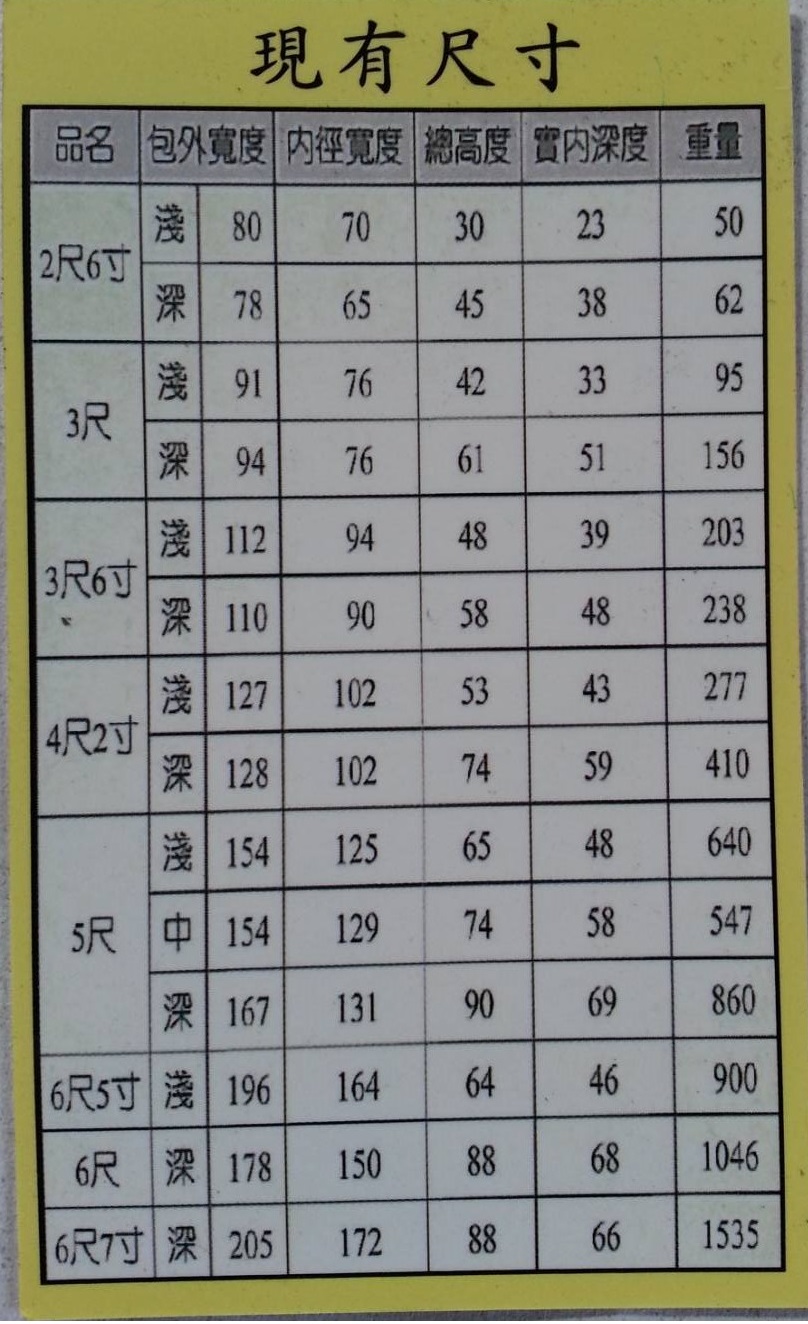 現有尺寸
品名 包外寬度 內徑寬度 總高度 實內深度 重量
2尺6寸 淺 80 70 30 23 50
深 78 65 45 38 62
3尺 淺 91 76 42 33 95
深 94 76 61 51 156
3尺6寸 淺 112 94 48 39 203
深 110 90 58 48 238
4尺2寸 淺 127 102 53 43 277
深 128 102 74 59 410
5尺 淺 154 125 65 48 640
中 154 129 74 58 547
深 167 131 90 69 860
6尺5寸 淺 196 164 64 46 900
6尺 深 178 150 88 68 1046
6尺7寸 深 205 172 88 66 1535